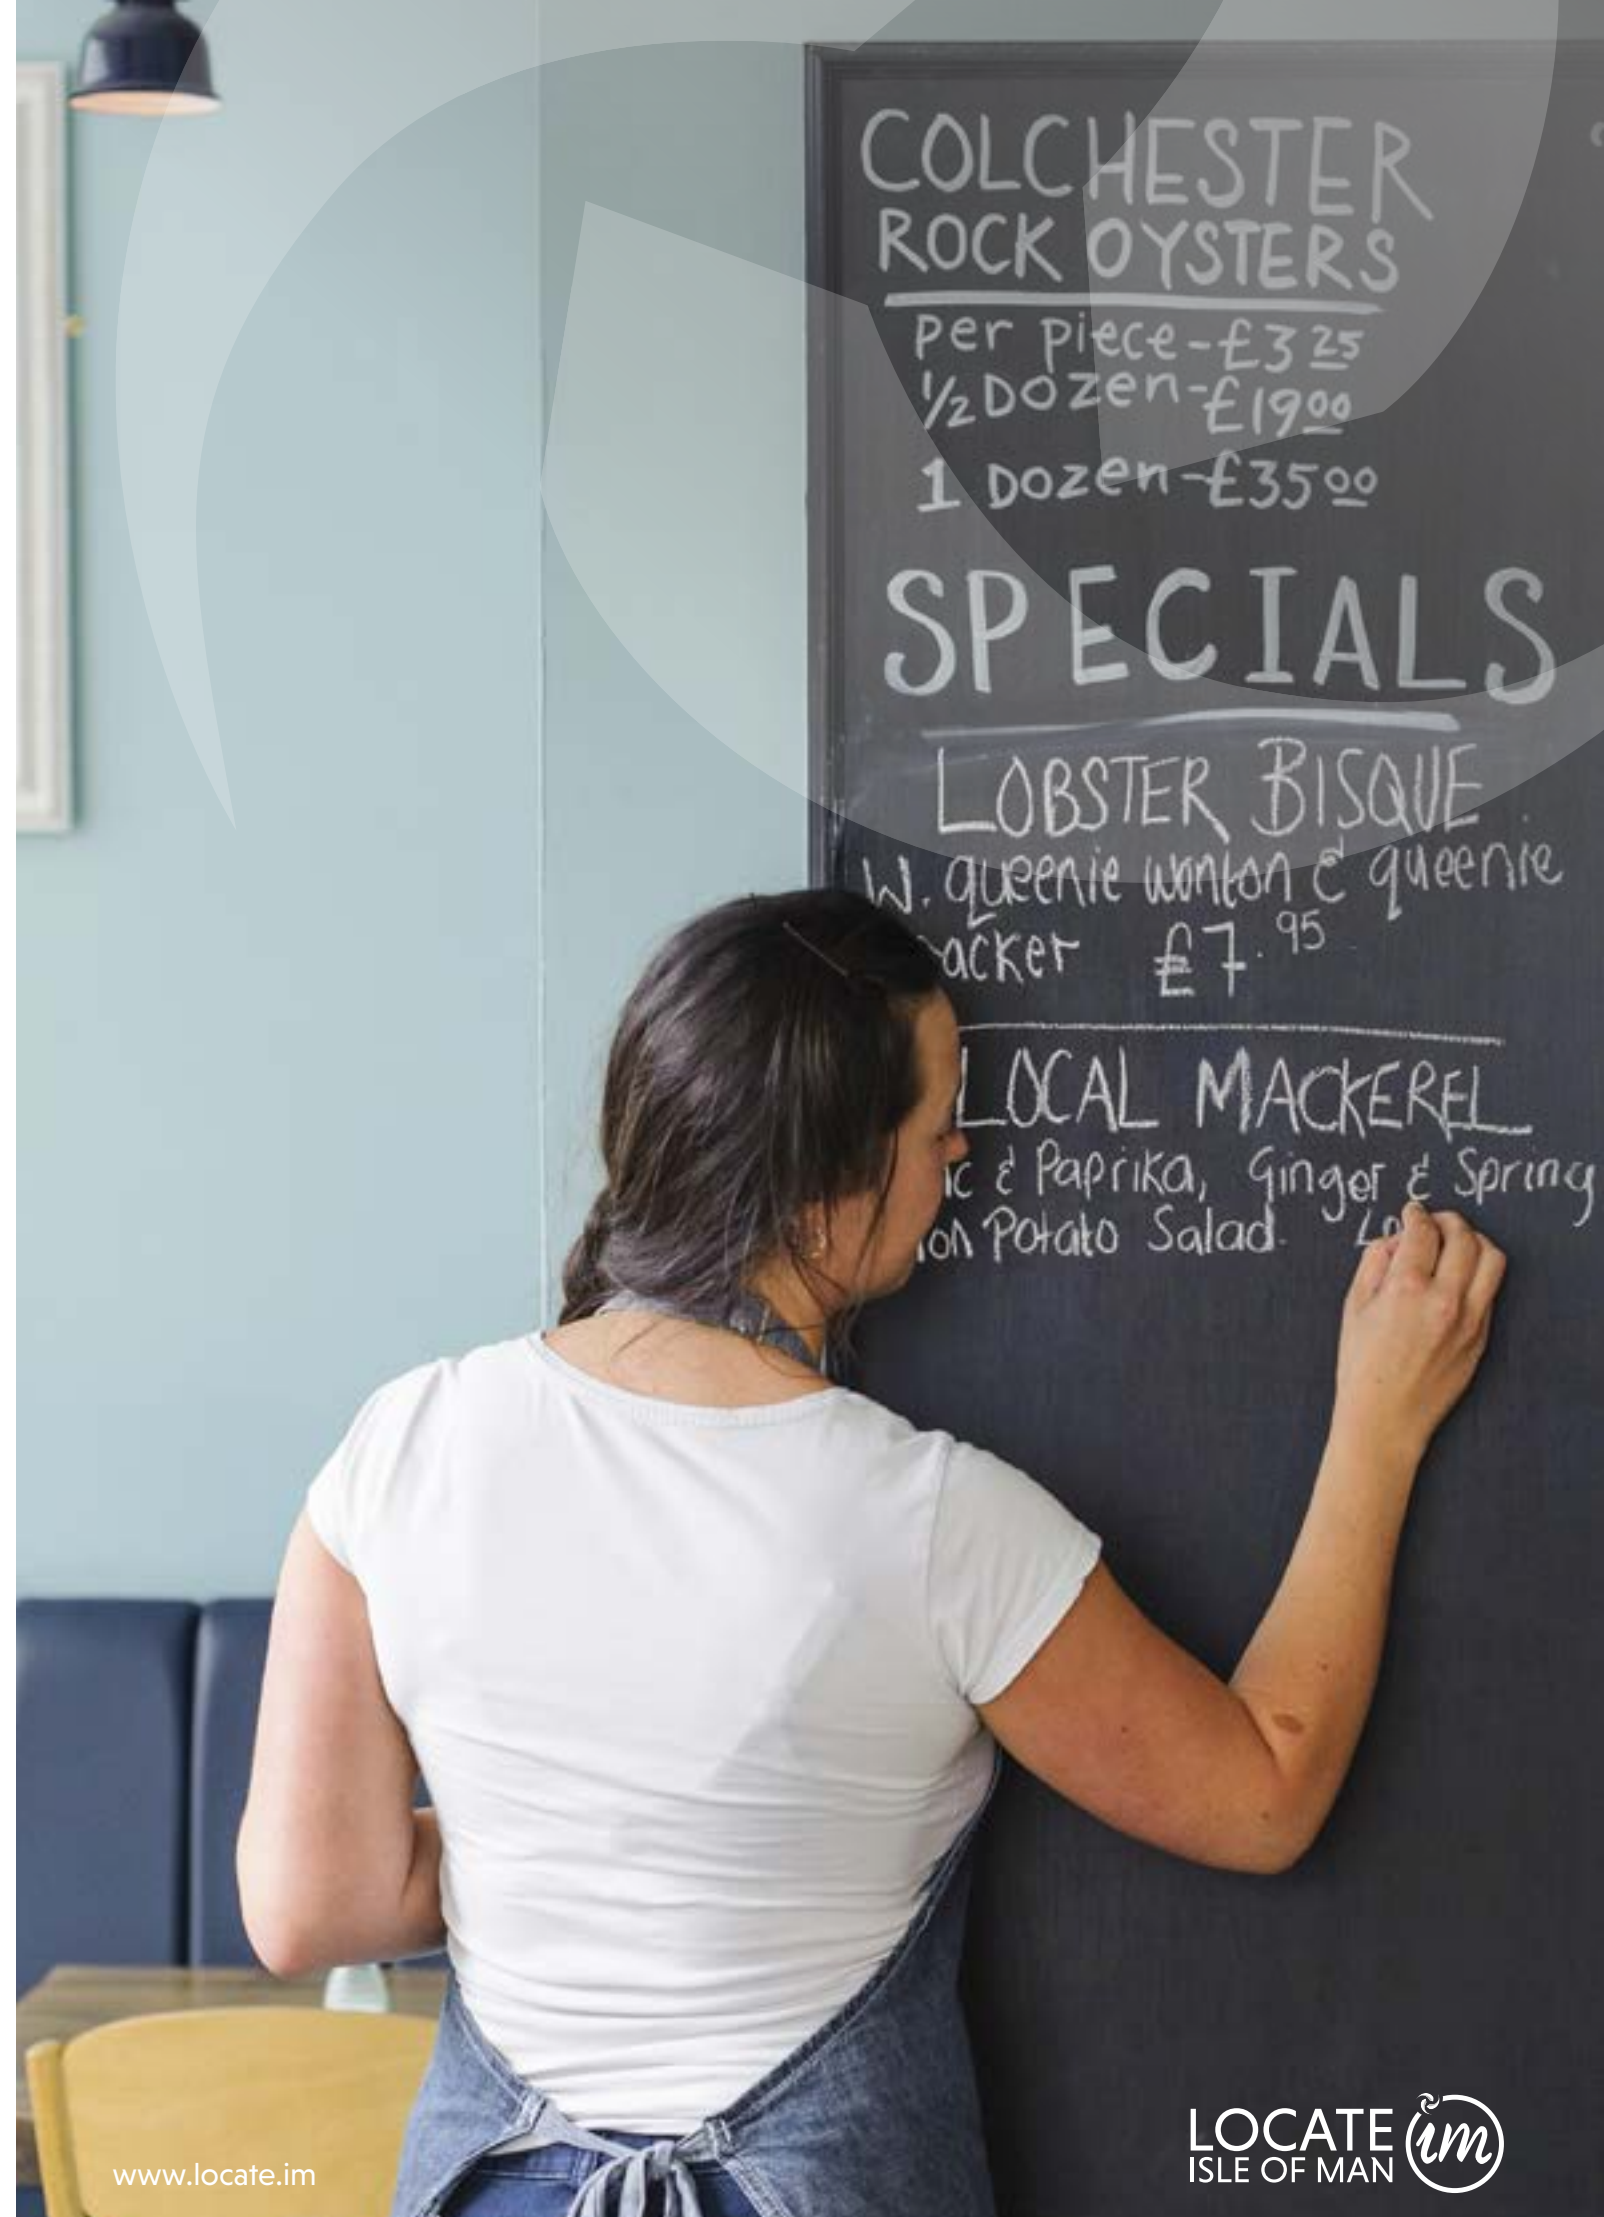 COLCHESTER
ROCK OYSTERS
per piece - £3 25
1/2 Dozen - £19 00
1 Dozen - £35 00
SPECIALS
LOBSTER BISQUE
W. queenie wonton & queenie
£7.95
LOCAL MACKEREL
& Paprika, Ginger & Spring
Potato Salad.
LOCATE im
ISLE OF MAN
www.locate.im